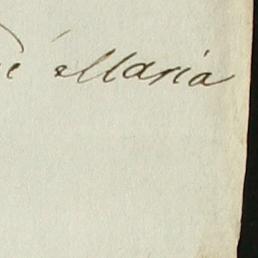 é Maria